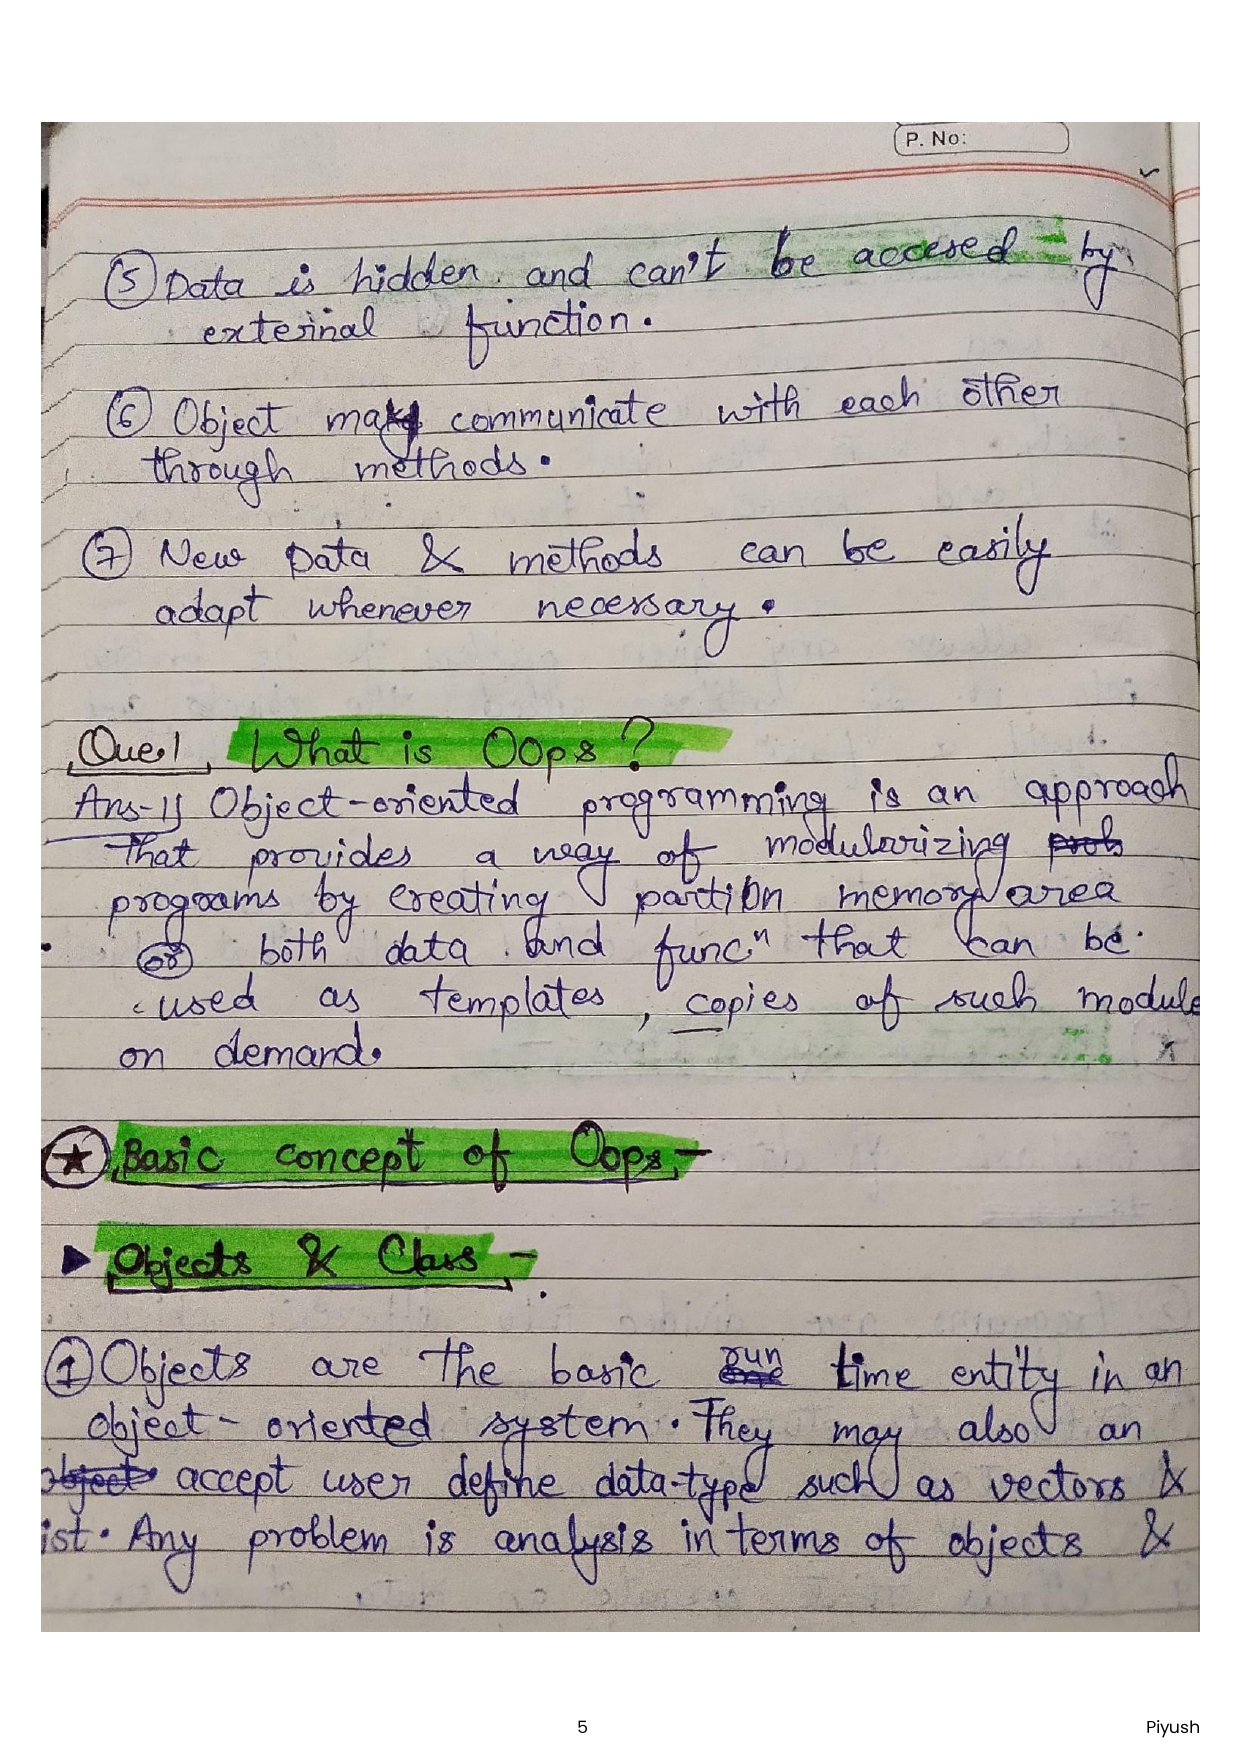 P. No:
⑤ Data is hidden and can't be accesed by
external function.
⑥ Object may communicate with each other
through methods.
⑦ New Data & methods can be easily
adapt whenever necessary.
Que.1 What is Oops?
Ans-1) Object-oriented programming is an approach
That provides a way of modularizing
programs by creating partion memory area
or both data and funcⁿ that can be
used as templates, copies of such module
on demand.
★ Basic concept of Oops,-
Objects & Class -
① Objects are the basic run time entity in an
object-oriented system. They may also an
accept user define data-type such as vectors &
ist. Any problem is analysis in terms of objects &
5
Piyush